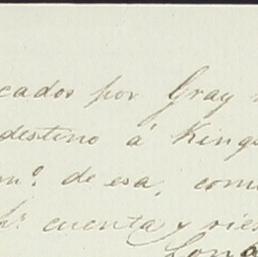 cados por Gray
destino á Kings
m.º de esa, com
cuenta y ries
Lon